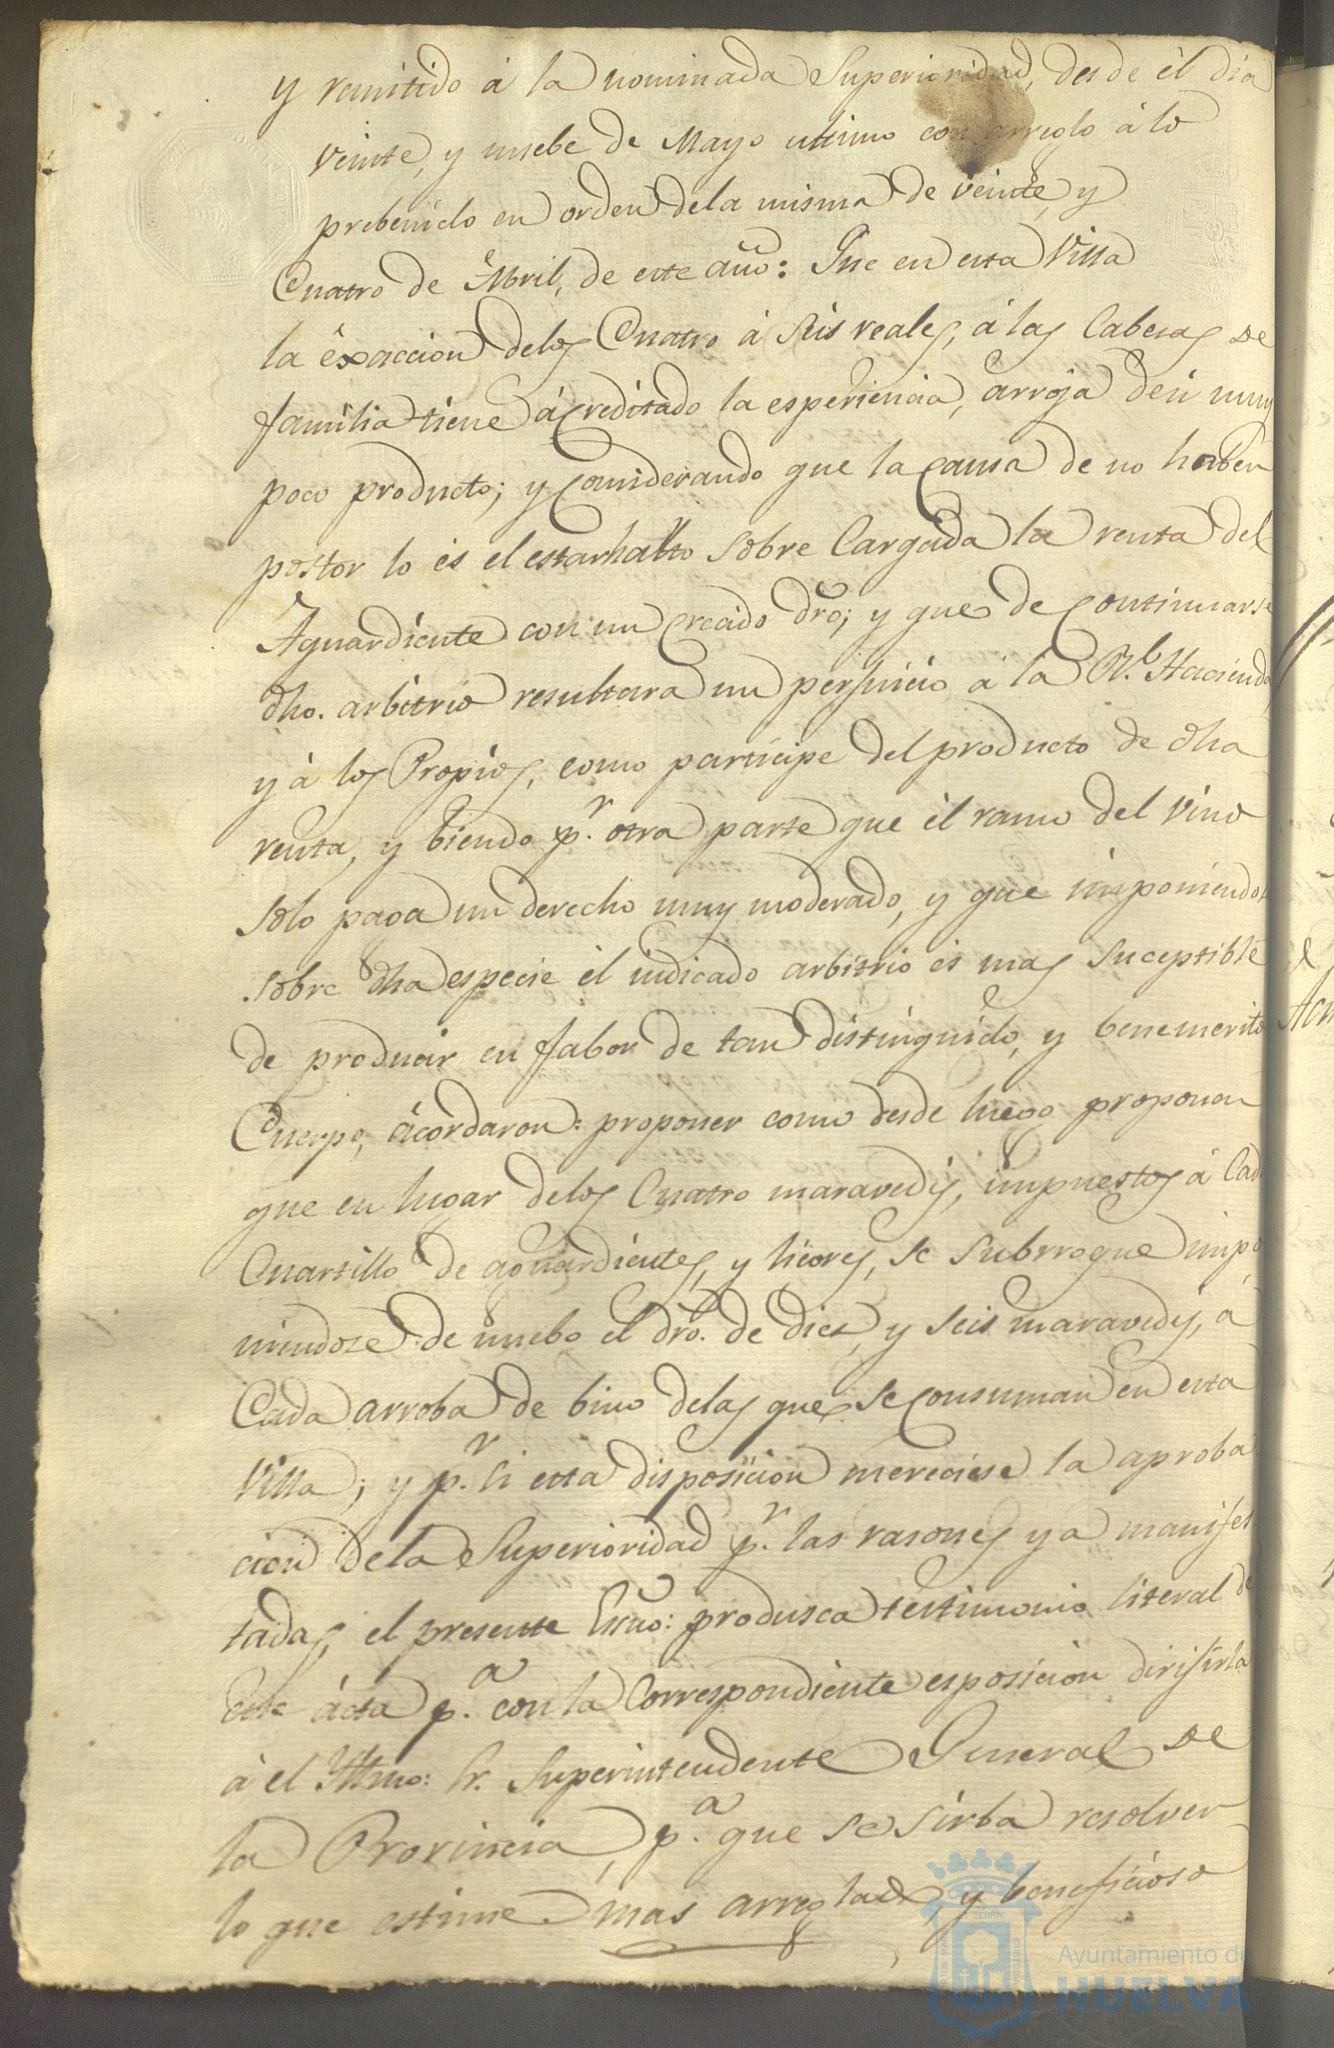 y remitido á la nominada Superioridad, desde él dia
veinte, y nuebe de Mayo ultimo con arreglo á lo
prebenido en orden dela misma de veinte, y
Cuatro de Abril, de este año: Que en esta Villa
la éxaccion delos Cuatro á Seis reales, á las Cabesas de
família tiene ácreditado la esperiencia, arroja de si muy
poco producto; y Considerando que la Causa de no haber
postor lo és el estar halto sobre Cargada la renta del
Aguardíente con un Crecido dro; y que de Continuarse
dho. arbitrio resultara un perjuicio á la Rl. Hacienda,
y á los Propios, como participe del producto de dha
renta, y biendo pr. otra parte que él ramo del Vino
solo paga un derecho muy moderado, y que imponiendo
sobre dha especie él indicado arbitrio és mas suceptible
de producir en fabor de tan distinguido, y benemerito
Cuerpo, ácordaron: proponer como desde luego proponen
que en lugar delos Cuatro maravedis, impuestos á Cada
Cuartillo de aguardientes, y licores, se Subrrogue impo
niendose de nuebo el dro. de dies, y seis maravedis, á
Cada arroba de bino delas que se Consuman en esta
Villa; y pr. si esta disposicion mereciese la aproba
cion dela Superioridad pr. las rasones ya manifes
tadas, el presente Essno: produsca testimonio literal de
Este ácta pa. con la Correspondiente esposicion dirijirla
á el Yltmo: Sr. Superintendente General de
la Provincia, pa. que se sirba resolver
lo que estime mas arreglado y beneficioso
Ayuntamiento de
HUELVA